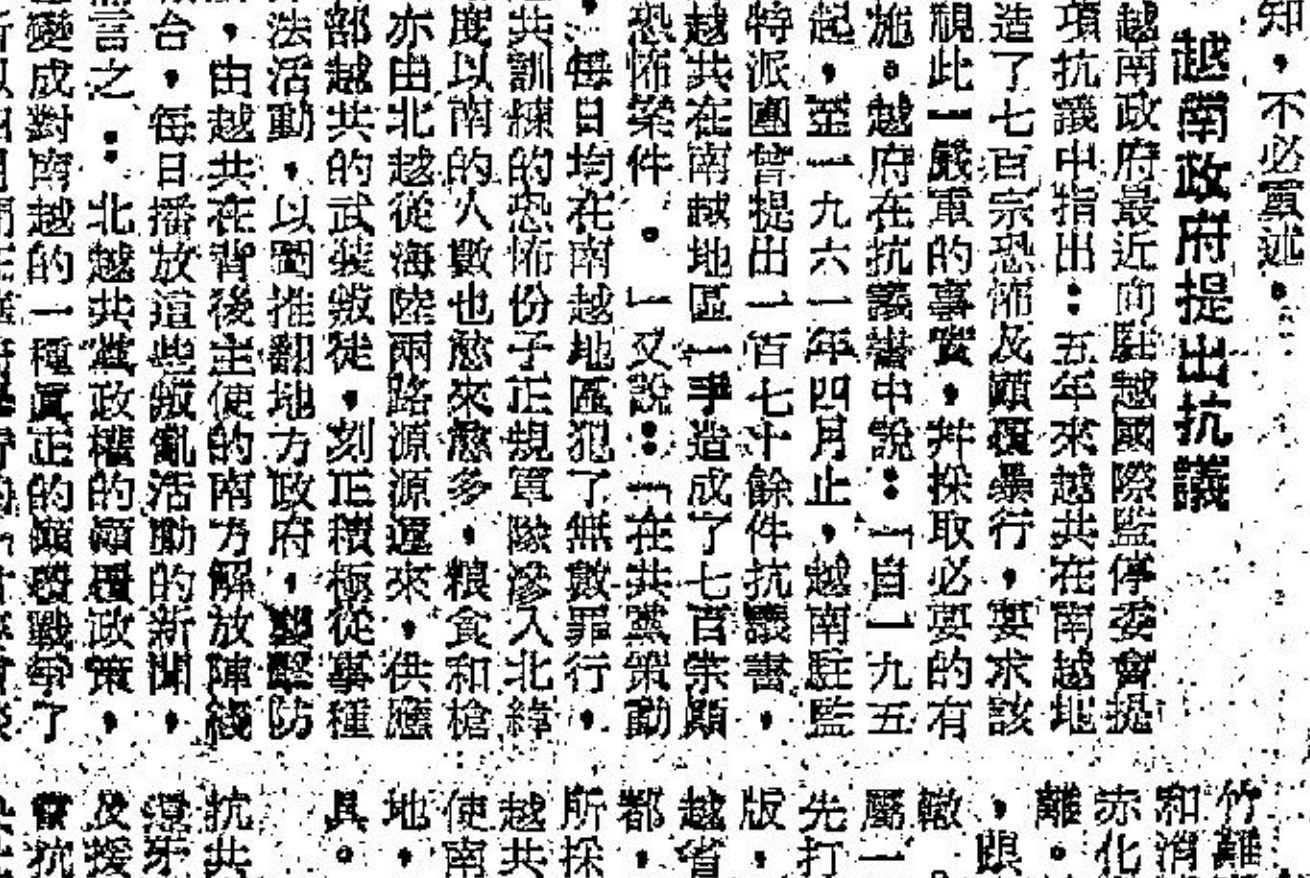 知，不必重述。
越南政府提出抗議
越南政府最近向駐越國際監停委會提
項抗議中指出：五年來越共在南越地
造了七百宗恐怖及顛覆暴行，要求該
視此一嚴重的事實，幷採取必要的有
施。越府在抗議書中說：「自一九五
起，至一九六一年四月止，越南駐監
特派團曾提出二百七十餘件抗議書，
越共在南越地區一手造成了七百宗顛
恐怖案件。」又說：「在共黨策動
，每日均在南越地區犯了無數罪行，
共訓練的恐怖份子正規軍隊滲入北緯
度以南的人數也愈來愈多，粮食和槍
亦由北越從海陸兩路源源運來，供應
部越共的武裝叛徒，刻正積極從事種
法活動，以圖推翻地方政府，擊防
，由越共在背後主使的南方解放陣綫
台，每日播放這些叛亂活動的新聞，
言之：北越共黨政權的顛覆政策，
變成對南越的一種眞正的顛覆戰爭了
竹
和消
赤化
離。
，
轍
屬一
先打
版，
越省
都，
所採
越共
使南
地，
具。
抗共
牙
及援
抗